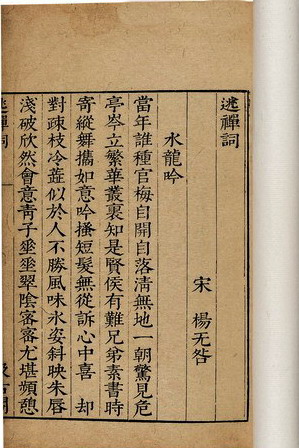 逃禪詞
宋 楊无咎
水龍吟
當年誰種官梅自開自落清無地一朝驚見危
亭岑立繁華叢裏知是賢侯有難兄弟素書時
寄縱舞攜如意吟搔短髮無從訴心中喜 却
對疎枝冷蘂似於人不勝風味氷姿斜映朱唇
淺破欣然會意靑子垂垂翠陰密密尤堪頻憩
逃禪詞
汲古閣